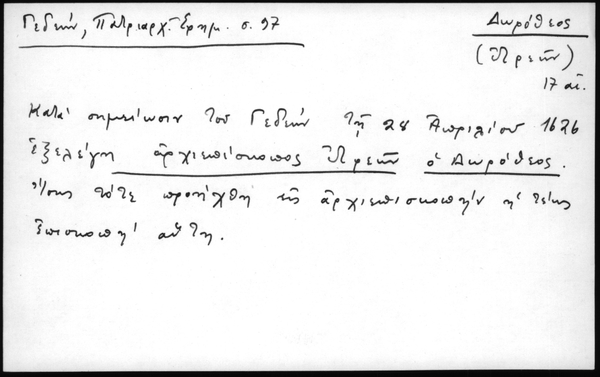 Γεδεών, Πατριαρχ. Ἐφημ. σ. 97
Δωρόθεος
(Ἠτρεῶν)
17 αἰ.
Κατά σημείωσιν τοῦ Γεδεών τῇ 28 Ἀπριλίου 1626
ἐξελέγη ἀρχιεπίσκοπος Ἠτρεῶν ὁ Δωρόθεος.
Ἴσως τότε προήχθη εἰς ἀρχιεπισκοπήν ἡ τέως
ἐπισκοπή αὕτη.